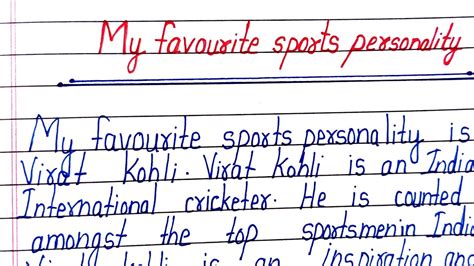 My favourite sports personality
My favourite sports personality is
Virat Kohli. Virat Kohli is an India
International cricketer. He is counted
amongst the top sportsmenin Indi
is an inspiration and